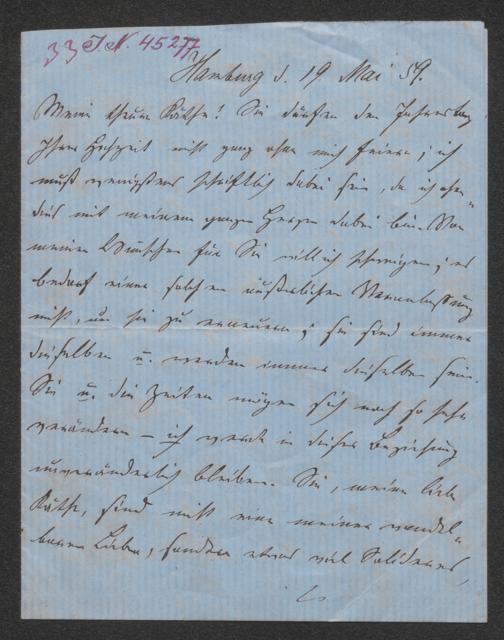 33 I. N. 45277
Hamburg d. 19 Mai 59.
Meine theure Käthe! Sie dürfen den Jahrestag
Ihrer Hochzeit nicht ganz ohne mich feiern; ich
muß wenigstens schriftlich dabei sein, da ich ohne¬
dies mit meinem ganzen Herzen dabei bin. Von
meinen Wünschen für Sie will ich schweigen; es
bedarf einer solchen äußerlichen Veranlassung
nicht, um sie zu erneuern; sie sind immer
dieselben u. werden immer dieselben sein.
Sie u. die Zeiten mögen sich noch so sehr
verändern – ich werde in dieser Beziehung
unveränderlich bleiben. Sie, meine liebe
Käthe, sind nicht eine meiner wandel¬
baren Lieben, sondern etwas viel Solideres,